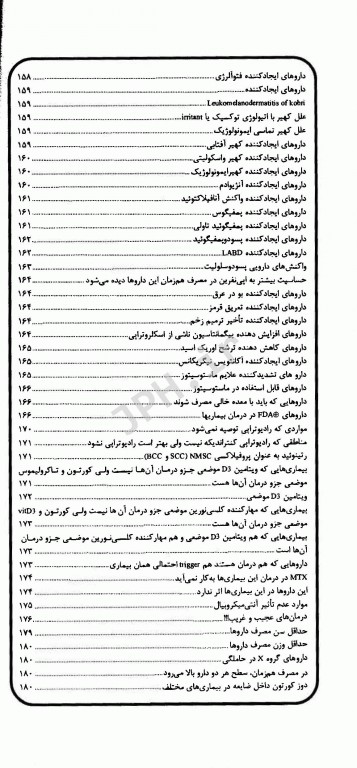 داروهای ایجادکننده فتوآلرژی ۱۵۸
داروهای ایجادکننده ۱۵۹
Leukomelanodermatitis of kobri ۱۵۹
علل کهیر با اتیولوژی توکسیک یا irritant ۱۵۹
علل کهیر تماسی ایمونولوژیک ۱۵۹
داروهای ایجادکننده کهیر آفتابی ۱۵۹
داروهای ایجادکننده کهیر واسکولیتی ۱۶۰
داروهای ایجادکننده کهیرایمونولوژیک ۱۶۰
داروهای ایجادکننده آنژیوادم ۱۶۰
داروهای ایجادکننده واکنش آنافیلاکتوئید ۱۶۱
داروهای ایجادکننده پمفیگوس ۱۶۱
داروهای ایجادکننده پمفیگوئید تاولی ۱۶۱
داروهای ایجادکننده پسودوپمفیگوئید ۱۶۲
داروهای ایجادکننده LABD ۱۶۲
واکنش‌های دارویی پسودوسلولیت ۱۶۳
حساسیت بیشتر به اپی‌نفرین در مصرف همزمان این داروها دیده می‌شود ۱۶۴
داروهای ایجادکننده بو در عرق ۱۶۴
داروهای ایجادکننده تعریق قرمز ۱۶۴
داروهای ایجادکننده تأخیر ترمیم زخم ۱۶۴
داروهای افزایش دهنده پیگمانتاسیون ناشی از اسکلروتراپی ۱۶۴
داروهای کاهش دهنده ترشح اوریک اسید ۱۶۵
داروهای ایجادکننده آکانتوسیس نیگریکانس ۱۶۵
دارو های تشدیدکننده علایم ماستوسیتوز ۱۶۵
داروهای قابل استفاده در ماستوسیتوز ۱۶۶
داروهایی که باید با معده خالی مصرف شوند ۱۶۶
داروهای FDA⊕ در درمان بیماریها ۱۶۶
مواردی که رادیوتراپی توصیه نمی‌شود ۱۷۰
مناطقی که رادیوتراپی کنتراندیکه نیست ولی بهتر است رادیوتراپی نشود ۱۷۱
رتینوئید به عنوان پروفیلاکسی NMSC (SCC و BCC) ۱۷۱
بیماری‌هایی که ویتامین D3 موضعی جزو درمان آن‌ها نیست ولی کورتون و تاکرولیموس
موضعی جزو درمان آن‌ها هست ۱۷۱
ویتامین D3 موضعی ۱۷۲
بیماری‌هایی که مهارکننده کلسی‌نورین موضعی جزو درمان آن ها نیست ولی کورتون و vitD3
موضعی جزو درمان آن‌ها هست ۱۷۳
بیماری‌هایی که هم ویتامین D3 موضعی و هم مهارکننده کلسی‌نورین موضعی جزو درمان
آن‌ها است ۱۷۳
داروهایی که هم درمان هستند هم trigger احتمالی همان بیماری ۱۷۳
MTX در درمان این بیماری‌ها به‌کار نمی‌آید ۱۷۴
این داروها در این بیماری‌ها اثر ندارد ۱۷۴
موارد عدم تأثیر آنتی‌میکروبیال ۱۷۵
درمان‌های عجیب و غریب!!! ۱۷۶
حداقل سن مصرف داروها ۱۷۹
حداقل وزن مصرف داروها ۱۸۰
داروهای گروه X در حاملگی ۱۸۰
در مصرف همزمان، سطح هر دو دارو بالا می‌رود ۱۸۰
دوز کورتون داخل ضایعه در بیماری‌های مختلف ۱۸۰